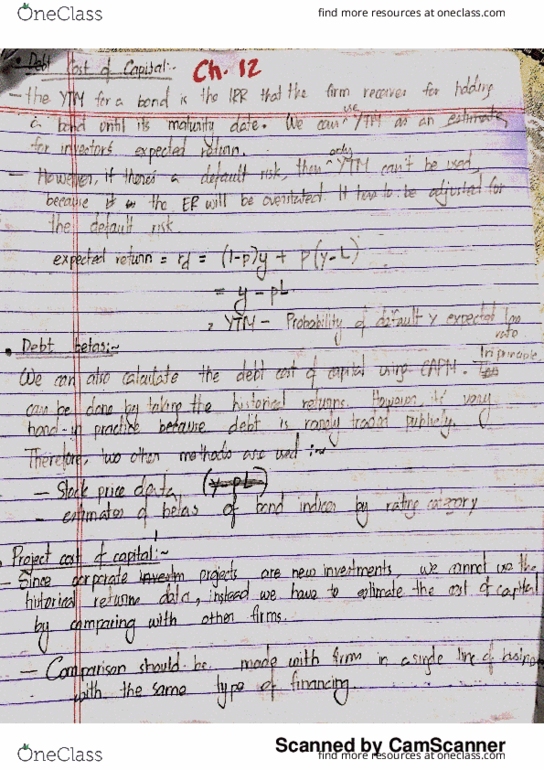 OneClass
find more resources at oneclass.com
• Debt Cost of Capital:- Ch. 12
- the YTM for a bond is the IRR that the firm receives for holding
a bond until its maturity date. We can use YTM as an estimate
for investors expected return.
- However, if there's a default risk, then only YTM can't be used,
because the ER will be overstated. It has to be adjusted for
the default risk
expected return = rd = (1-p)y + p(y-L)
= y - pL
= YTM - Probability of default x expected loss
rate
• Debt betas:~
We can also calculate the debt cost of capital using CAPM. In principle
can be done by taking the historical returns. However, it's very
hard in practice because debt is rarely traded publicly.
Therefore, two other methods are used :~
- Stock price data (y-pL)
- estimates of betas of bond indices by rating category
Project cost of capital:~
- Since corporate investm projects are new investments we cannot use the
historical returns data, instead we have to estimate the cost of capital
by comparing with other firms.
- Comparison should be made with firms in a single line of
with the same type of financing.
Scanned by CamScanner
OneClass
find more resources at oneclass.com